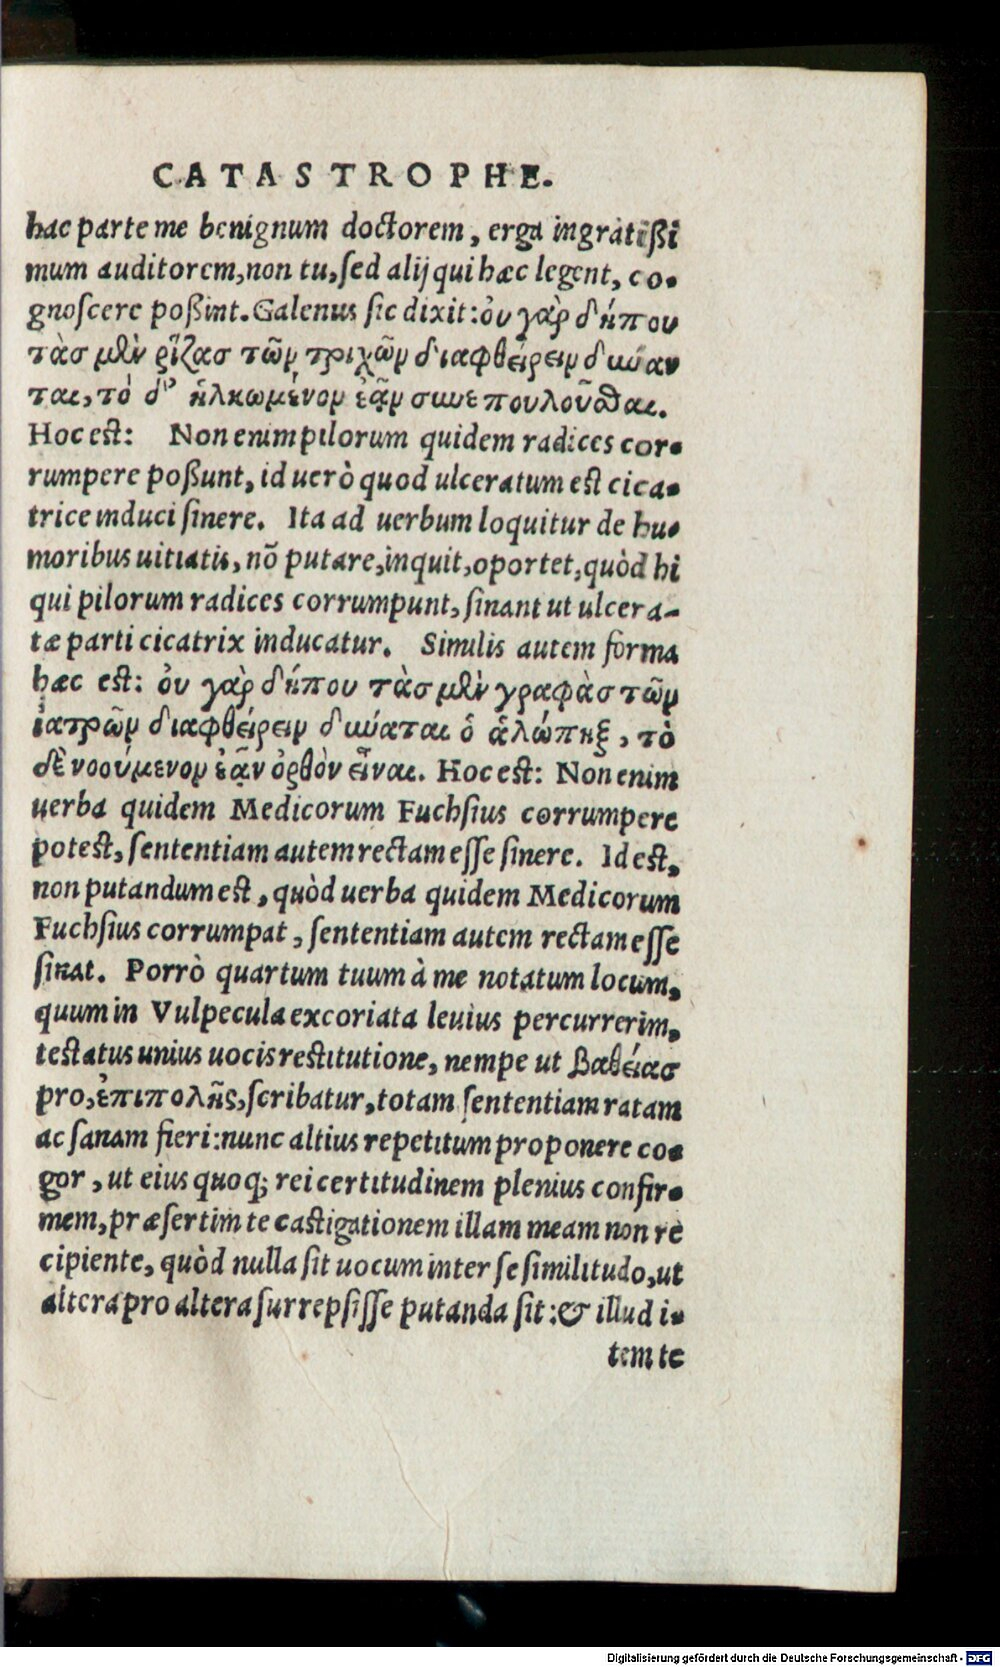 CATASTROPHE.
hac parte me benignum doctorem, erga ingratißi
mum auditorem, non tu, sed alij qui hæc legent, co-
gnoscere poßint. Galenus sic dixit: οὐ γὰρ δήπου
τὰσ μὲν ῥίζασ τῶν τριχῶν διαφθείρειν δύναν
ται, τὸ δ' ἡλκωμένον ἐᾷν συνεπουλοῦσθαι.
Hoc est: Non enim pilorum quidem radices cor-
rumpere poßunt, id uerò quod ulceratum est cica-
trice induci sinere. Ita ad uerbum loquitur de hu-
moribus uitiatis, nõ putare, inquit, oportet, quòd hi
qui pilorum radices corrumpunt, sinant ut ulcera-
tæ parti cicatrix inducatur. Similis autem forma
hæc est: οὐ γὰρ δήπου τὰσ μὲν γραφὰσ τῶν
ἰατρῶν διαφθείρειν δύναται ὁ ἀλώπηξ, τὸ
δὲ νοούμενον ἐᾷν ὀρθὸν εἶναι. Hoc est: Non enim
uerba quidem Medicorum Fuchsius corrumpere
potest, sententiam autem rectam esse sinere. Id est,
non putandum est, quòd uerba quidem Medicorum
Fuchsius corrumpat, sententiam autem rectam esse
sinat. Porrò quartum tuum à me notatum locum,
quum in Vulpecula excoriata leuius percurrerim,
testatus unius uocis restitutione, nempe ut βαθείασ
pro, ἐπιπολῆς, scribatur, totam sententiam ratam
ac sanam fieri: nunc altius repetitum proponere co-
gor, ut eius quoq; rei certitudinem plenius confir-
mem, præsertim te castigationem illam meam non re
cipiente, quòd nulla sit uocum inter se similitudo, ut
altera pro altera surrepsisse putanda sit: & illud i-
tem te
Digitalisierung gefördert durch die Deutsche Forschungsgemeinschaft - DFG